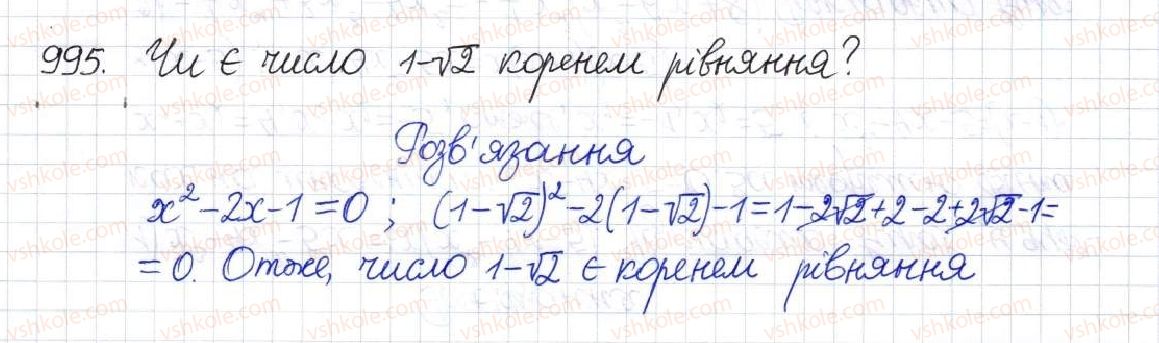 995. Чи є число 1-√2 коренем рівняння?
Розв'язання
x²-2x-1=0; (1-√2)²-2(1-√2)-1=1-2√2+2-2+2√2-1=
=0. Отже, число 1-√2 є коренем рівняння